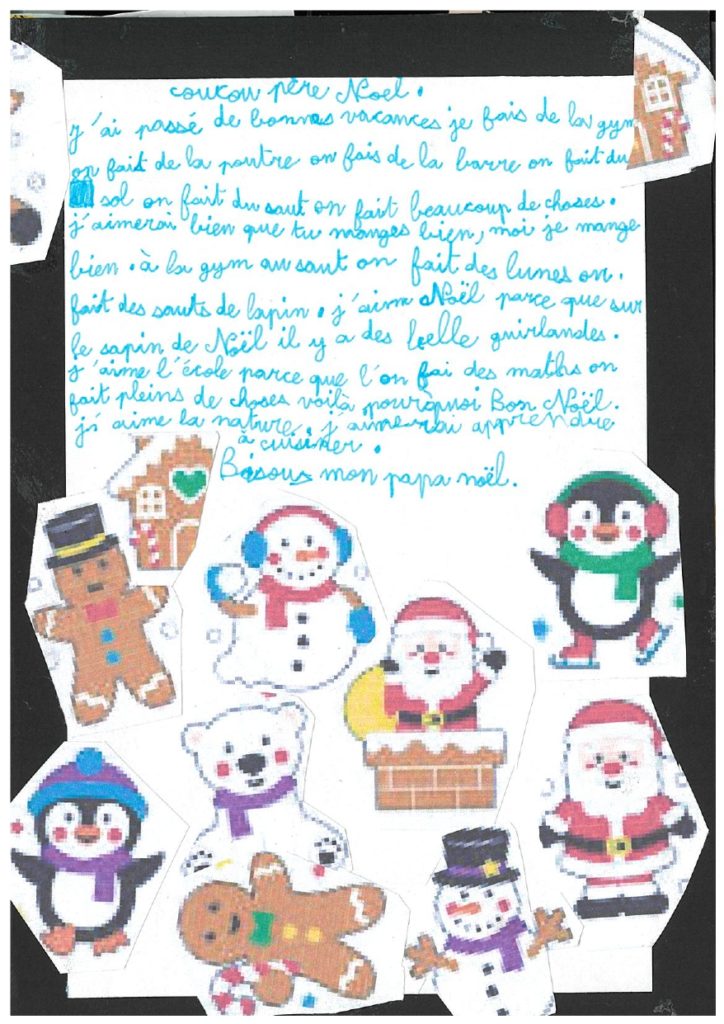 coucou père Noel.
j'ai passé de bonnes vacances je fais de la gym
on fait de la poutre on fais de la barre on fait du
sol on fait du saut on fait beaucoup de choses.
j'aimerai bien que tu manges bien, moi je mange
bien. à la gym au saut on fait des lunes on.
fait des sauts de lapin. j'aime Noël parce que sur
le sapin de Noël il y a des belle guirlandes.
j'aime l'école parce que l'on fai des maths on
fait pleins de choses voilà pourquoi Bon Noël.
j'aime la nature. j'aimerai apprendre
à cuisiner.
Bisous mon papa noël.